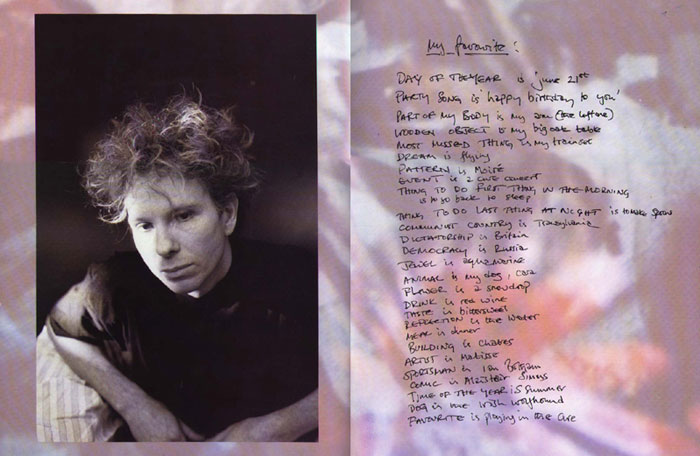 My favourite :
DAY OF THE YEAR is june 21st
PARTY SONG is 'happy birthday to you'
PART OF MY BODY is my arm (the left one)
WOODEN OBJECT is my big oak table
MOST MISSED THING is my trainset
DREAM is flying
PATTERN is Moiré
EVENT is a live concert
THING TO DO FIRST THING IN THE MORNING
is to go back to sleep
THING TO DO LAST THING AT NIGHT is to make
COMMUNIST COUNTRY is Transylvania
DICTATORSHIP is Britain
DEMOCRACY is Russia
JEWEL is aquamarine
ANIMAL is my dog, cara
FLOWER is a snowdrop
DRINK is red wine
TASTE is bittersweet
REFLECTION is the water
MEAL is dinner
BUILDING is
ARTIST is Matisse
SPORTSMAN is Ian Botham
COMIC is Alastair Simms
TIME OF THE YEAR is Summer
DOG is the Irish wolfhound
FAVOURITE is playing in the Cure